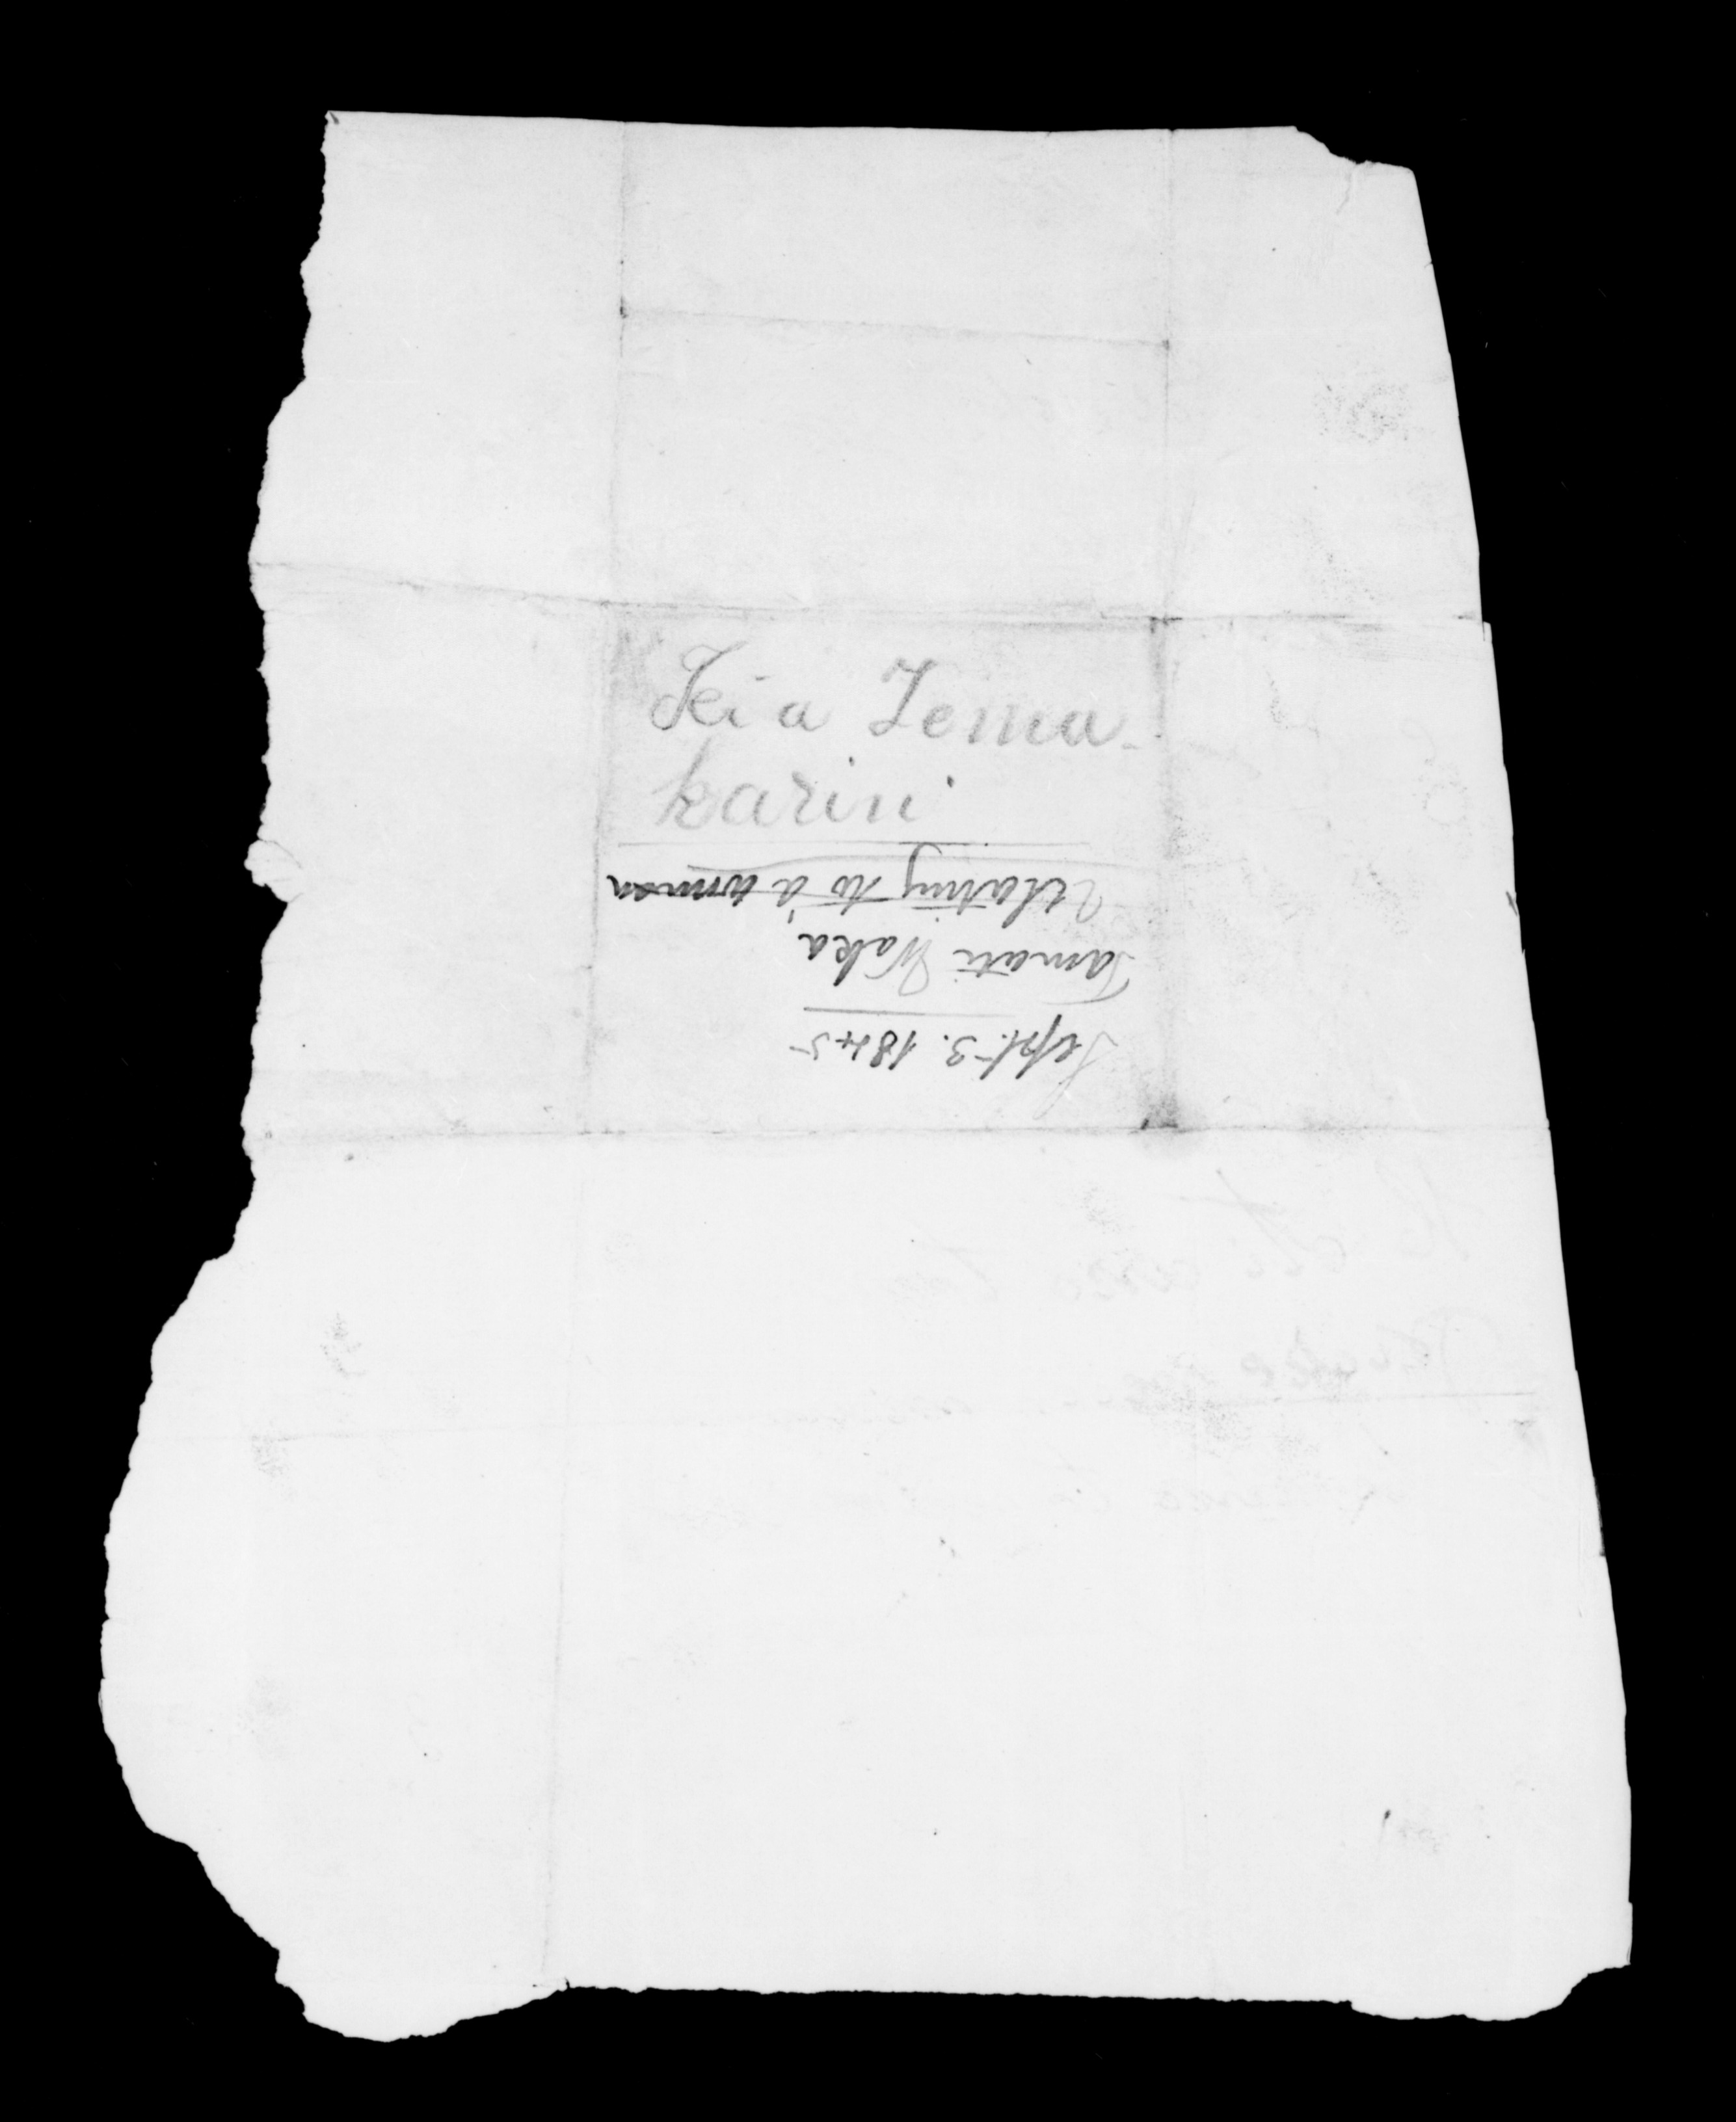 Kia Tema-
karini
Sept. 3. 1845
Tamati Waka
relating to a woman